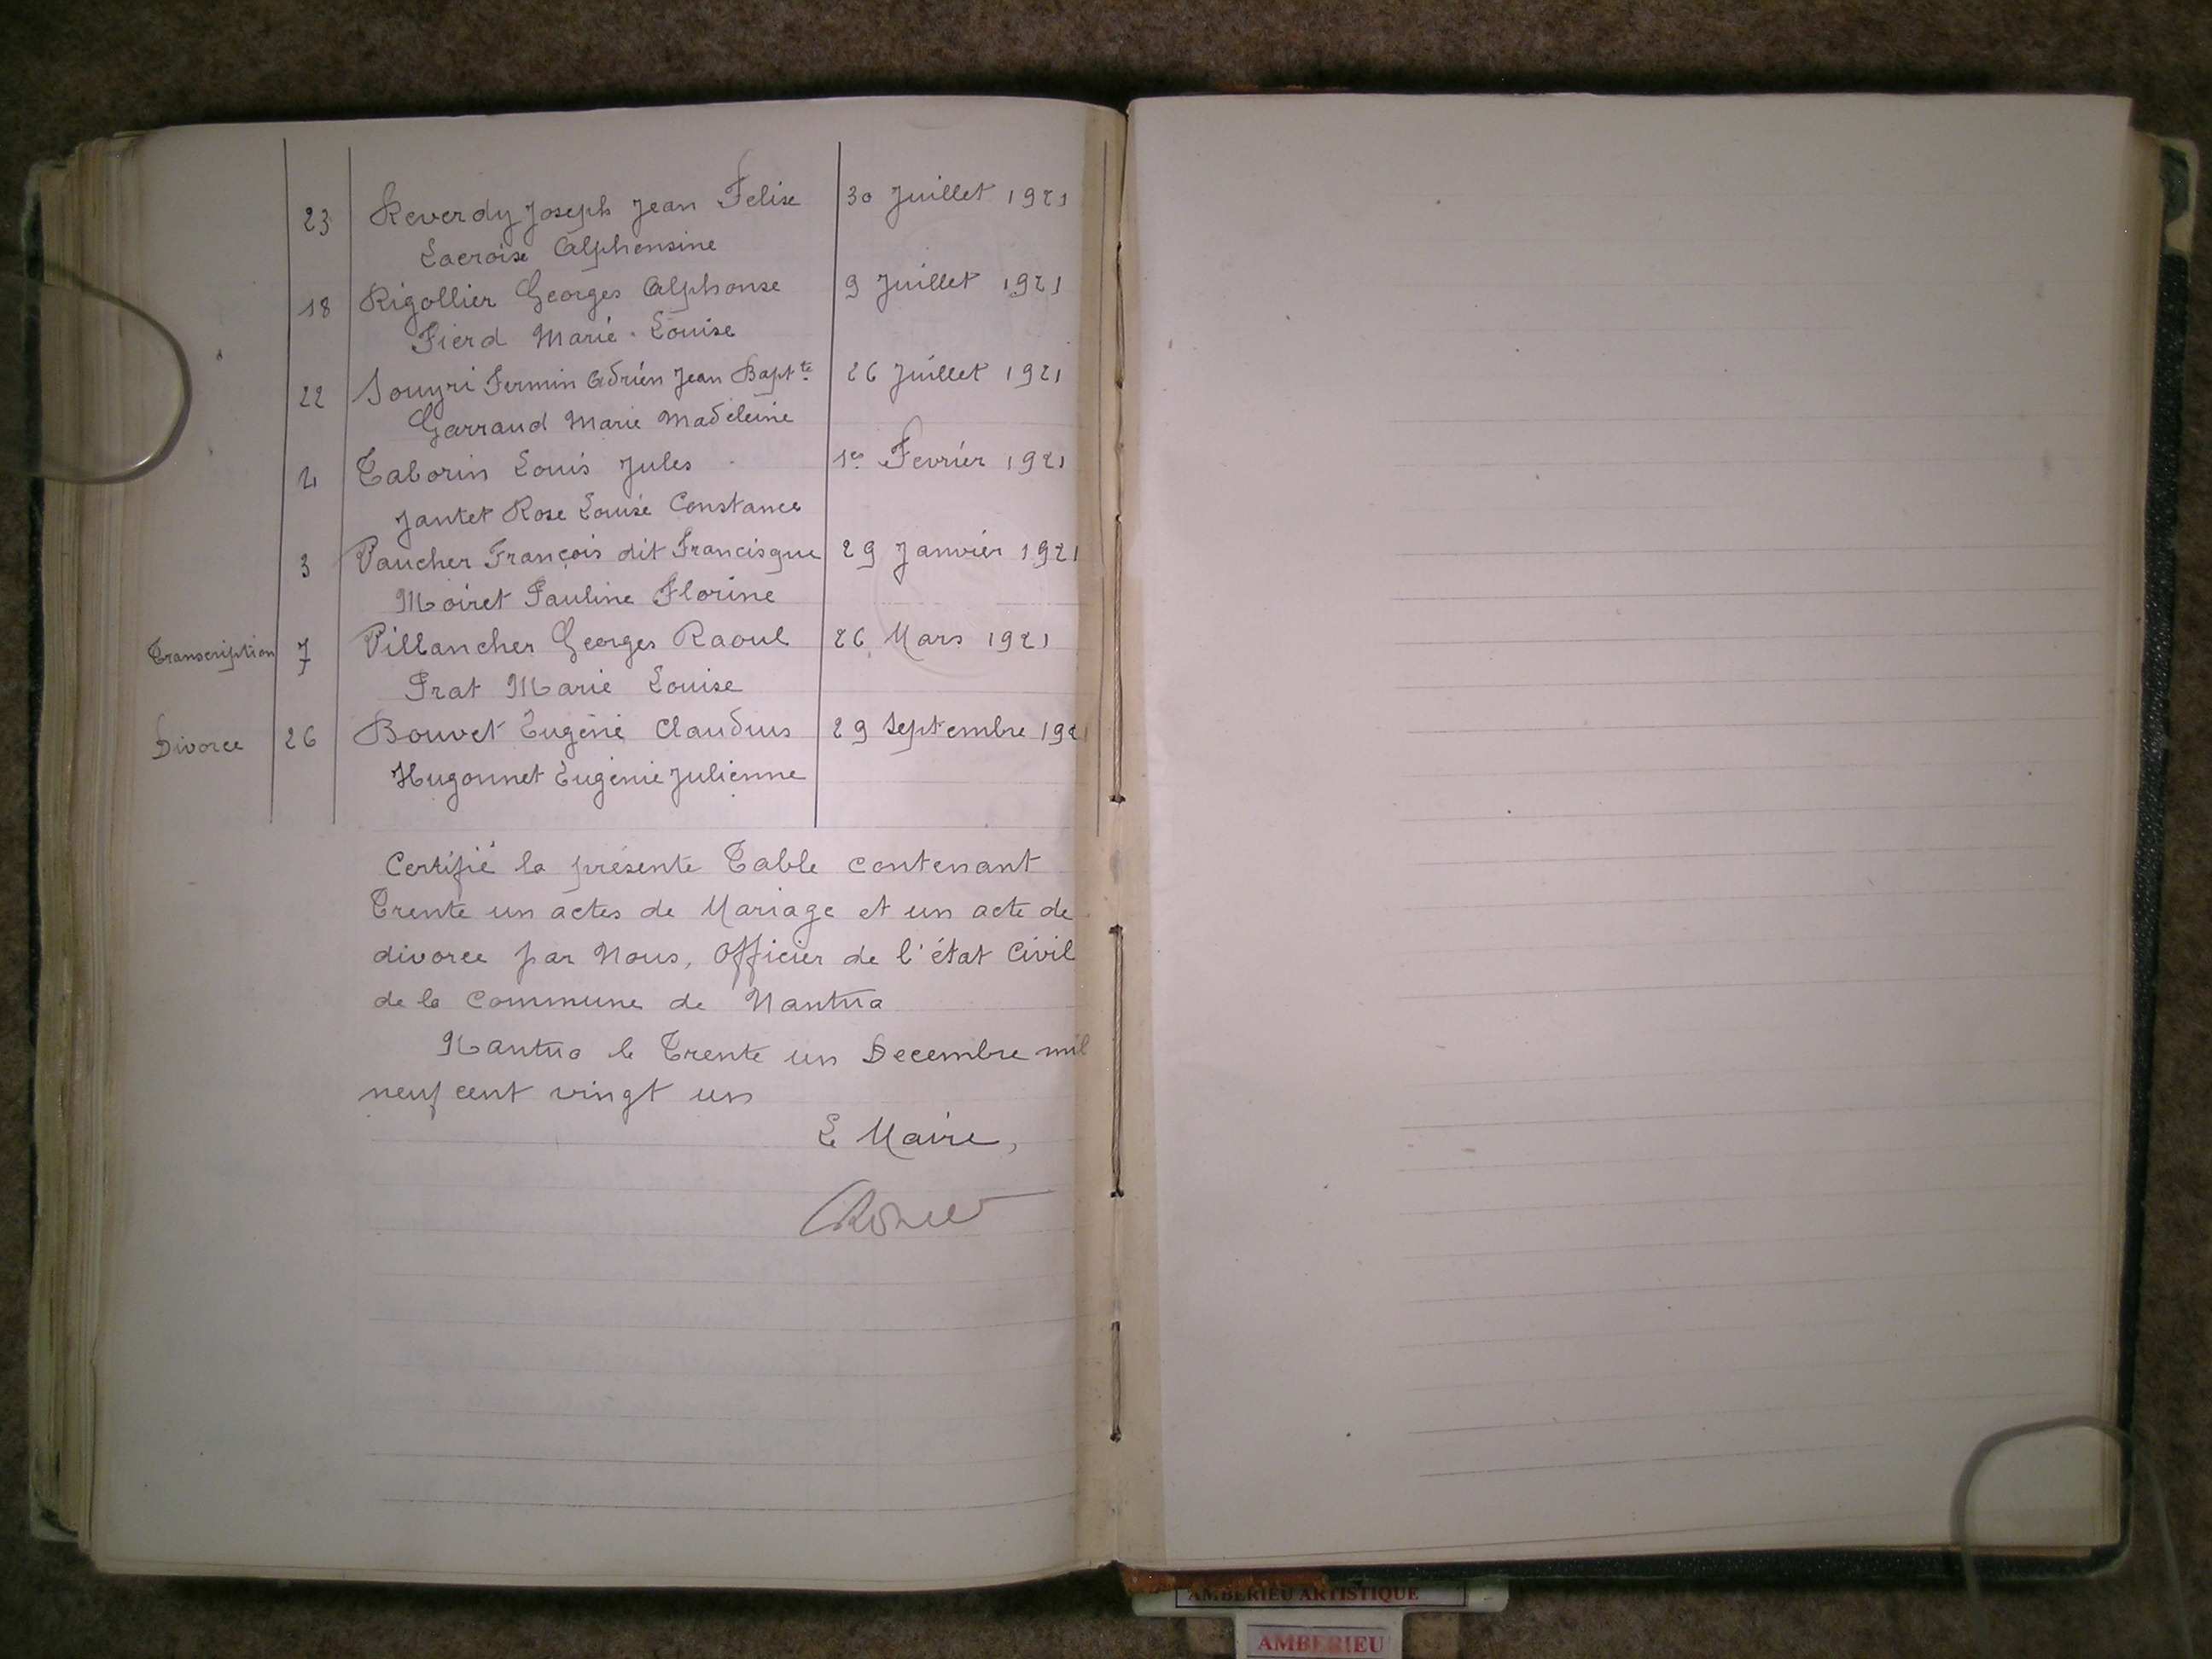 23 Reverdy Joseph Jean Felix 30 Juillet 1921
Lacroix Alphonsine
18 Rigollier Georges Alphonse 9 Juillet 1921
Fierd Marie-Louise
22 Souyri Firmin Adrien Jean Bapt.te 26 Juillet 1921
Garraud Marie Madeleine
Taborin Louis Jules 1er Fevrier 1921
Jantet Rose Louise Constance
3 Vaucher François dit Francisque 29 Janvier 1921
Moiret Pauline Florine
Transcription 7 Villancher Georges Raoul 26 Mars 1921
Prat Marie Louise
Divorce 26 Bouvet Eugène Claudius 29 Septembre 1921
Hugonnet Eugénie Julienne
Certifié la présente Table contenant
Trente un actes de Mariage et un acte de
divorce par Nous, Officier de l'état Civil
de la Commune de Nantua
Nantua le Trente un Decembre mil
neuf cent vingt un
Le Maire,
AMBERIEU ARTISTIQUE
AMBERIEU